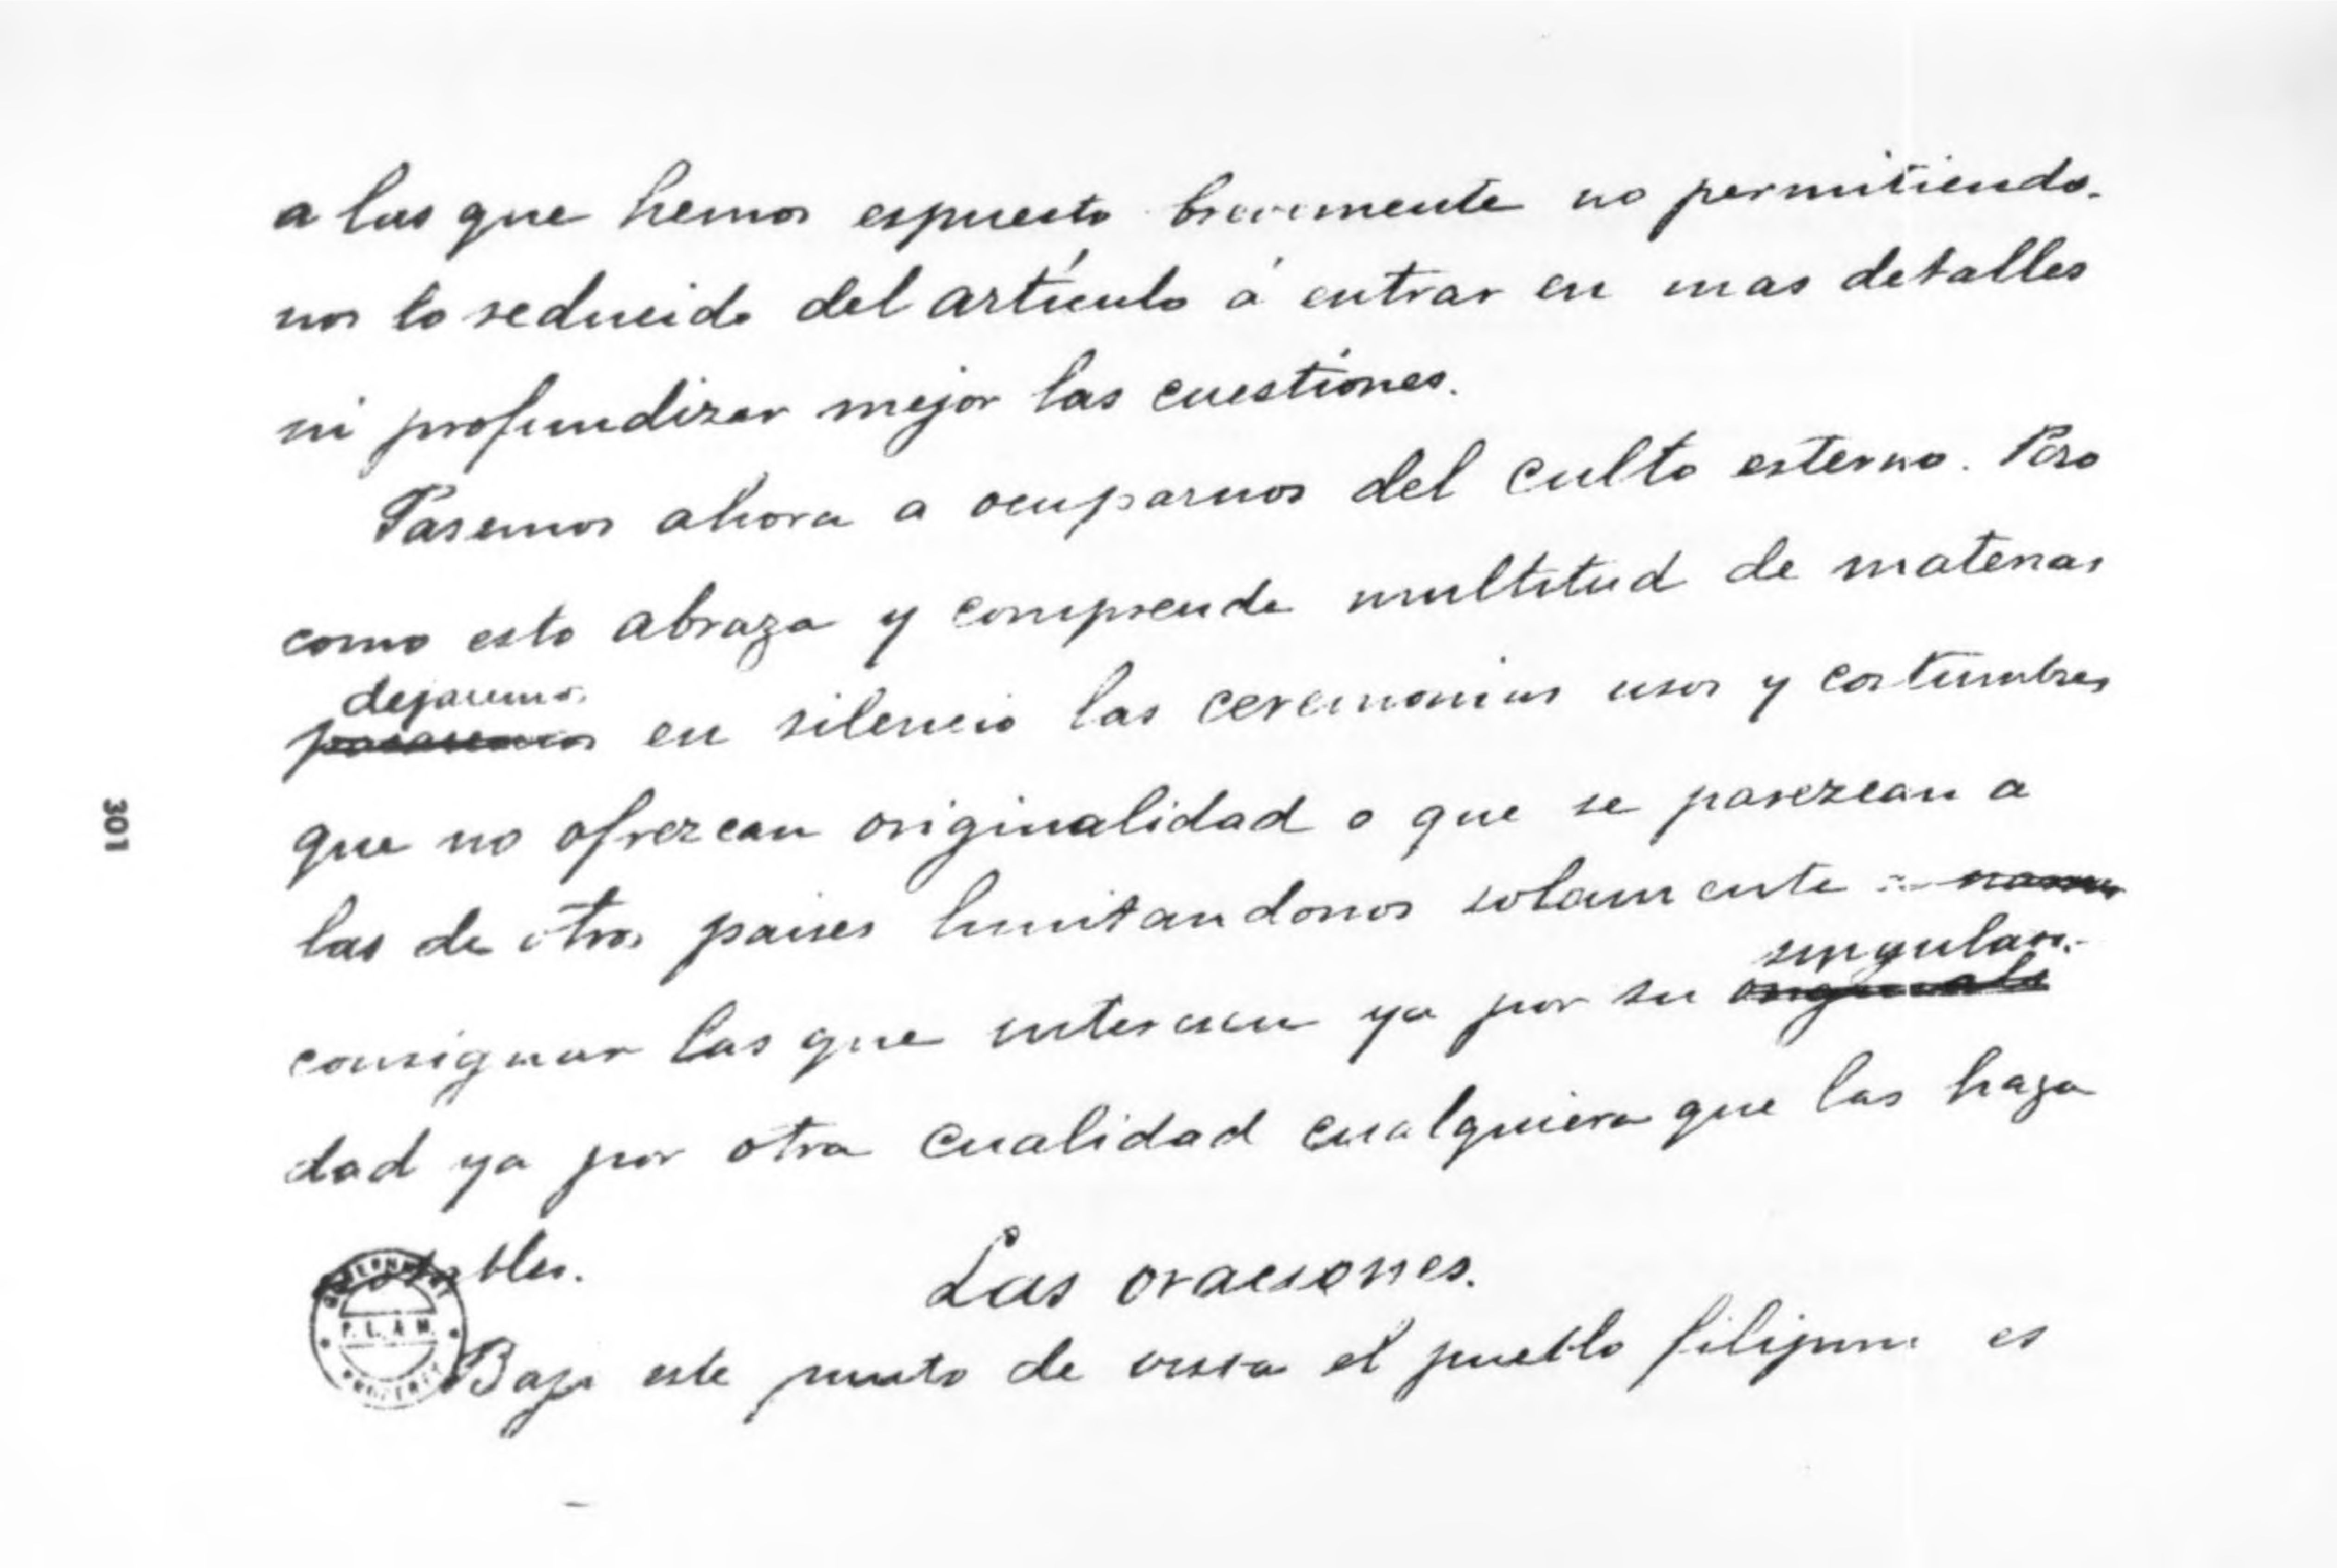 a las que hemos espuesto brevemente no permitiendo-
nos lo reducido del artículo á entrar en mas detalles
ni profundizar mejor las cuestiones.
Pasemos ahora a ocuparnos del culto esterno. Pero
como esto abraza y comprende multitud de materias
dejaremos
pasaremos en silencio las ceremonias usos y costumbres
que no ofrezcan originalidad o que se parezcan a
las de otros paises limitandonos solamente a
singulari-
consignar las que interesen ya por su originali
dad ya por otra cualidad cualquiera que las haga
notables.
Las oraciones.
Bajo este punto de vista el pueblo filipino es
301
GOVERNMENT
P. L. & M.
PROPERTY